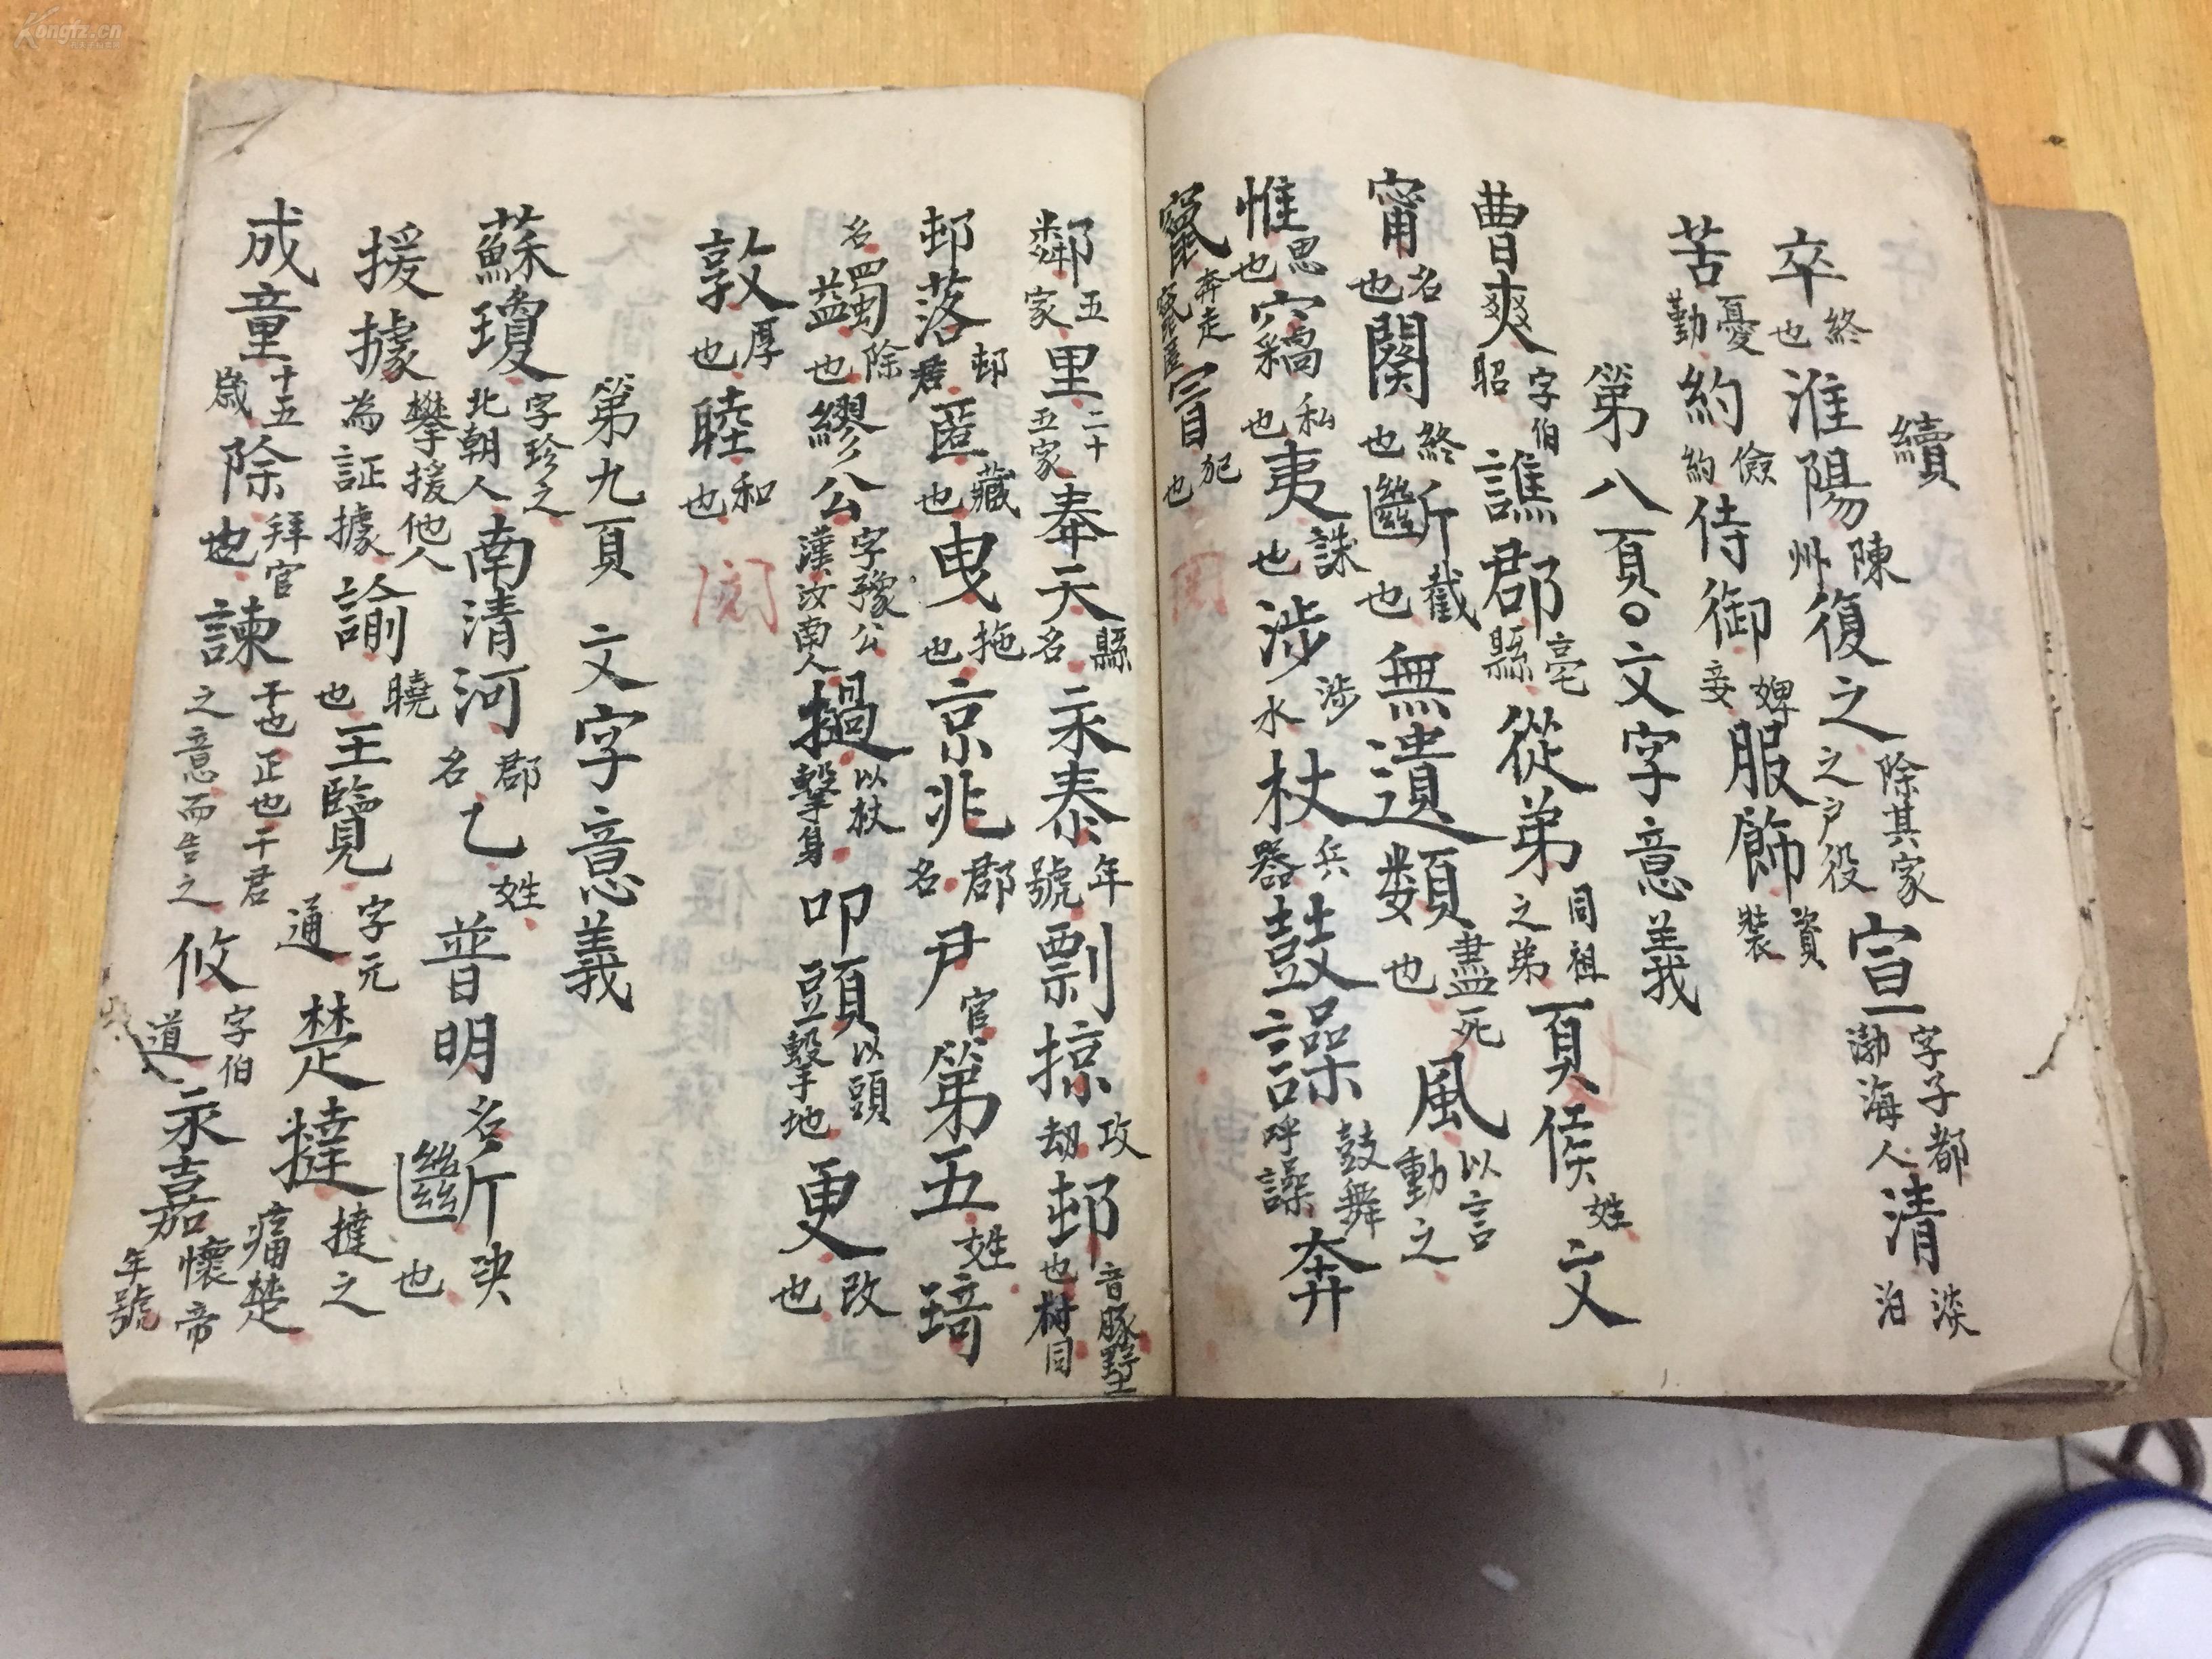 續
卒終也淮陽陳州復之除其家之戸役宣字子都渤海人清淡泊
苦憂勤約儉約侍御婢妾服飾資裝
第八頁〇文字意義
曹爽字伯昭譙郡亳縣從弟同祖之弟夏侯姓文
甯名也闋終也斷截也無遺類盡死也風以言動之
惟思也竊私也夷誅也涉涉水杖兵器鼓譟鼓舞呼譟奔
竄奔走竄匿冒犯也
鄰五家里二十五家奉天縣名永泰年號剽掠攻劫邨音豚野也村同
邨落邨居匿藏也曳拖也京兆郡名尹官第五姓琦
名蠲除也繆公字豫公漢汝南人撾以杖擊身叩頭以頭擊地更改也
敦厚也睦和也
第九頁 文字意義
蘇瓊字珍之北朝人南清河郡名乙姓普明名斷決也
援據攀援他人為証據諭曉也王覽字元通楚撻痛楚撻之
成童十五歲除拜官也諫干也正也干君之意而告之攸字伯道永嘉懷帝年號
Kongfz.cn